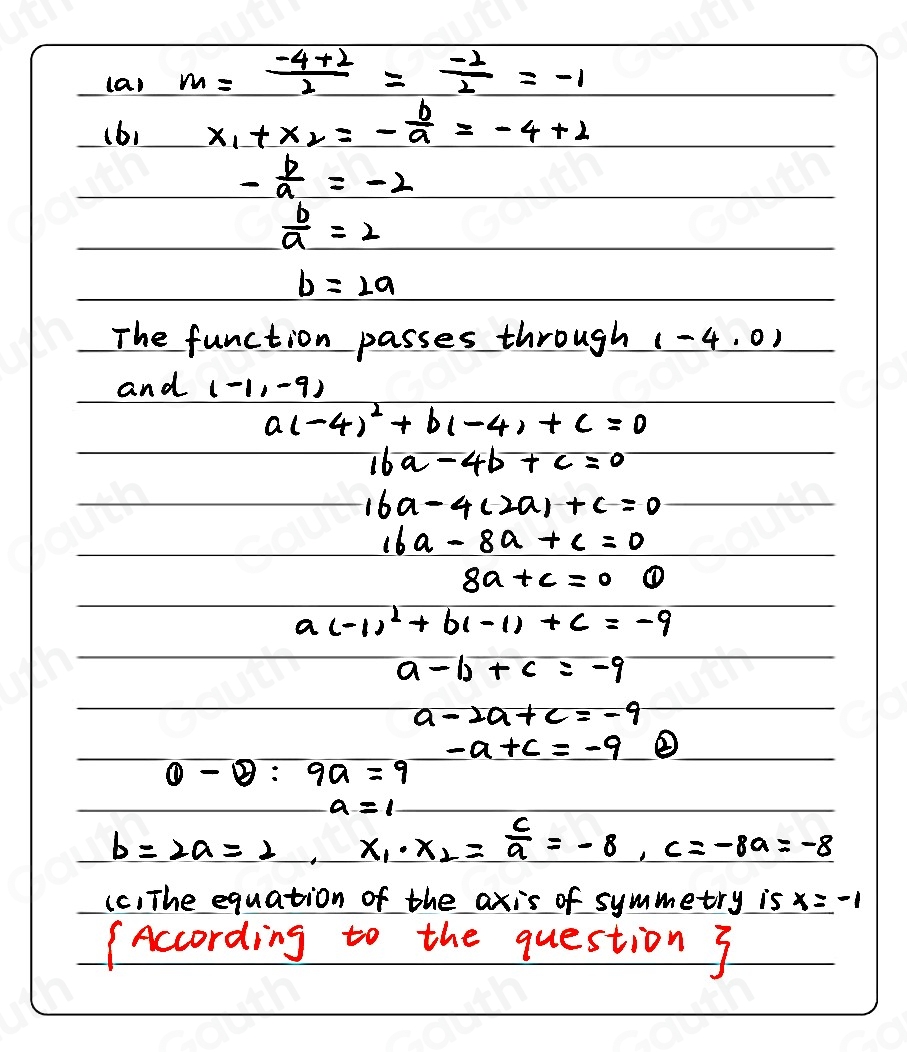 (a) m = (-4+2)/2 = -2/2 = -1
(b) x₁ + x₂ = -b/a = -4+2
-b/a = -2
b/a = 2
b = 2a
The function passes through (-4,0)
and (-1,-9)
a(-4)² + b(-4) + c = 0
16a - 4b + c = 0
16a - 4(2a) + c = 0
16a - 8a + c = 0
8a + c = 0 ①
a(-1)² + b(-1) + c = -9
a - b + c = -9
a - 2a + c = -9
-a + c = -9 ②
① - ②: 9a = 9
a = 1
b = 2a = 2, x₁·x₂ = c/a = -8, c = -8a = -8
(c) The equation of the axis of symmetry is x = -1
{According to the question}